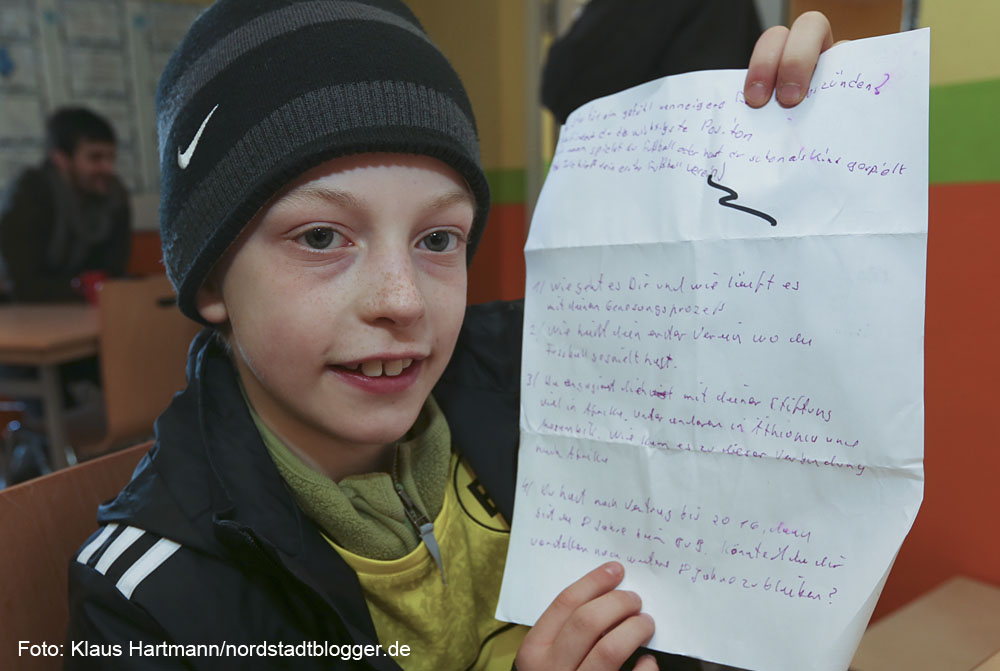 für ein gefühl eine eigene zünden?
Position
spielt er Fußball oder hat er schon als Kind gespielt
1/ Wie geht es Dir und wie läuft es
mit deinen Genesungsprozeß
2/ Wie heißt dein erster Verein wo du
Fussball gespielt hast.
3/ Du engagierst dich mit deiner Stiftung
viel in Afrika, unter anderem in Äthiopien und
. Wie kam es zu dieser Verbindung
nach Afrika
4/ Du hast noch Vertrag bis 2016, dann
bist du 8 Jahre beim BVB. Könntest du dir
vorstellen noch weitere 8 Jahre zu bleiben?
Foto: Klaus Hartmann/nordstadtblogger.de